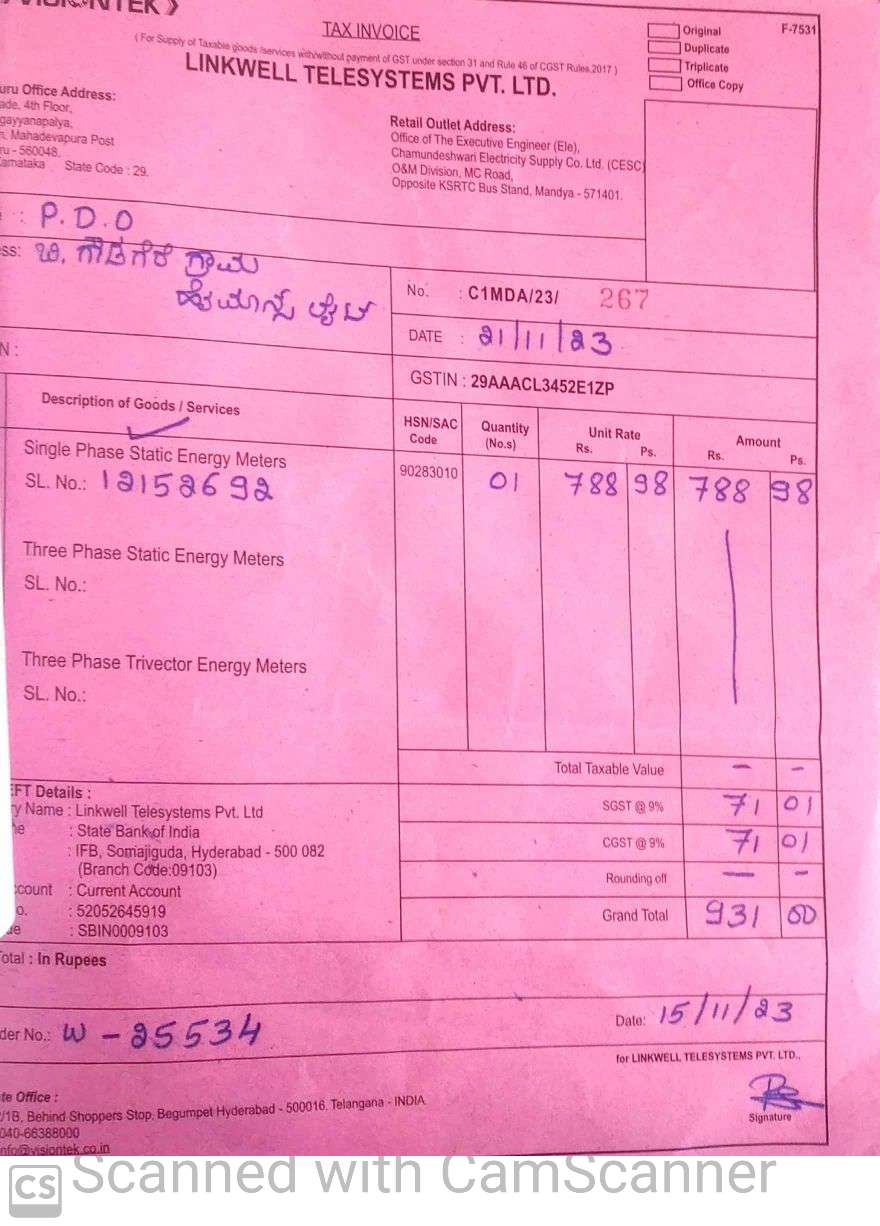 TAX INVOICE
( For Supply of Taxable goods /services with/without payment of GST under section 31 and Rule 46 of CGST Rules,2017 )
LINKWELL TELESYSTEMS PVT. LTD.
Original
Duplicate
Triplicate
Office Copy
F-7531
uru Office Address:
ade, 4th Floor,
gayyanapalya,
Mahadevapura Post
ru - 560048.
arnataka State Code : 29.
Retail Outlet Address:
Office of The Executive Engineer (Ele),
Chamundeshwari Electricity Supply Co. Ltd. (CESC)
O&M Division, MC Road,
Opposite KSRTC Bus Stand, Mandya - 571401.
: P.D.O
ss: ಬಿ. ಗೌಡಗೆರೆ ಗ್ರಾಮ
ಹೈಮಾಸ್ಟ್ ಲೈಟ್
No. : C1MDA/23/ 267
DATE : 21/11/23
N :
GSTIN : 29AAACL3452E1ZP
Description of Goods / Services HSN/SAC Code Quantity (No.s) Unit Rate Rs. Ps. Amount Rs. Ps.
Single Phase Static Energy Meters 90283010 01 788 98 788 98
SL. No.: 12152692
Three Phase Static Energy Meters
SL. No.:
Three Phase Trivector Energy Meters
SL. No.:
Total Taxable Value — –
SGST @ 9% 71 01
CGST @ 9% 71 01
Rounding off — –
Grand Total 931 00
EFT Details :
y Name : Linkwell Telesystems Pvt. Ltd
: State Bank of India
: IFB, Somajiguda, Hyderabad - 500 082
(Branch Code:09103)
ccount : Current Account
o. : 52052645919
de : SBIN0009103
otal : In Rupees
der No.: W - 25534
Date: 15/11/23
for LINKWELL TELESYSTEMS PVT. LTD.,
Signature
te Office :
/1B, Behind Shoppers Stop, Begumpet Hyderabad - 500016. Telangana - INDIA
040-66388000
nfo@visiontek.co.in
CS Scanned with CamScanner